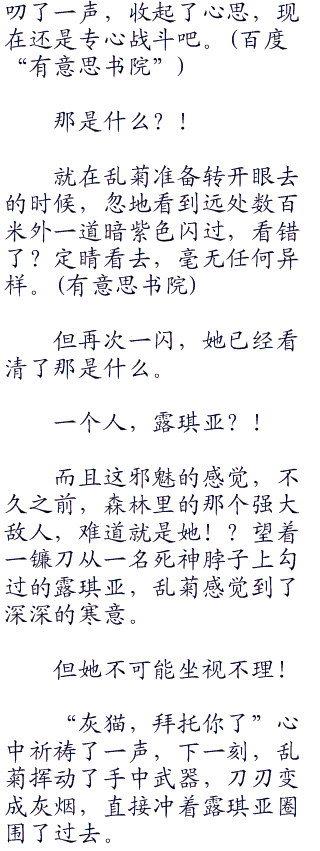 叨了一声，收起了心思，现
在还是专心战斗吧。(百度
“有意思书院”)
那是什么？！
就在乱菊准备转开眼去
的时候，忽地看到远处数百
米外一道暗紫色闪过，看错
了？定睛看去，毫无任何异
样。(有意思书院)
但再次一闪，她已经看
清了那是什么。
一个人，露琪亚？！
而且这邪魅的感觉，不
久之前，森林里的那个强大
敌人，难道就是她！？望着
一镰刀从一名死神脖子上勾
过的露琪亚，乱菊感觉到了
深深的寒意。
但她不可能坐视不理！
“灰猫，拜托你了”心
中祈祷了一声，下一刻，乱
菊挥动了手中武器，刀刃变
成灰烟，直接冲着露琪亚圈
围了过去。